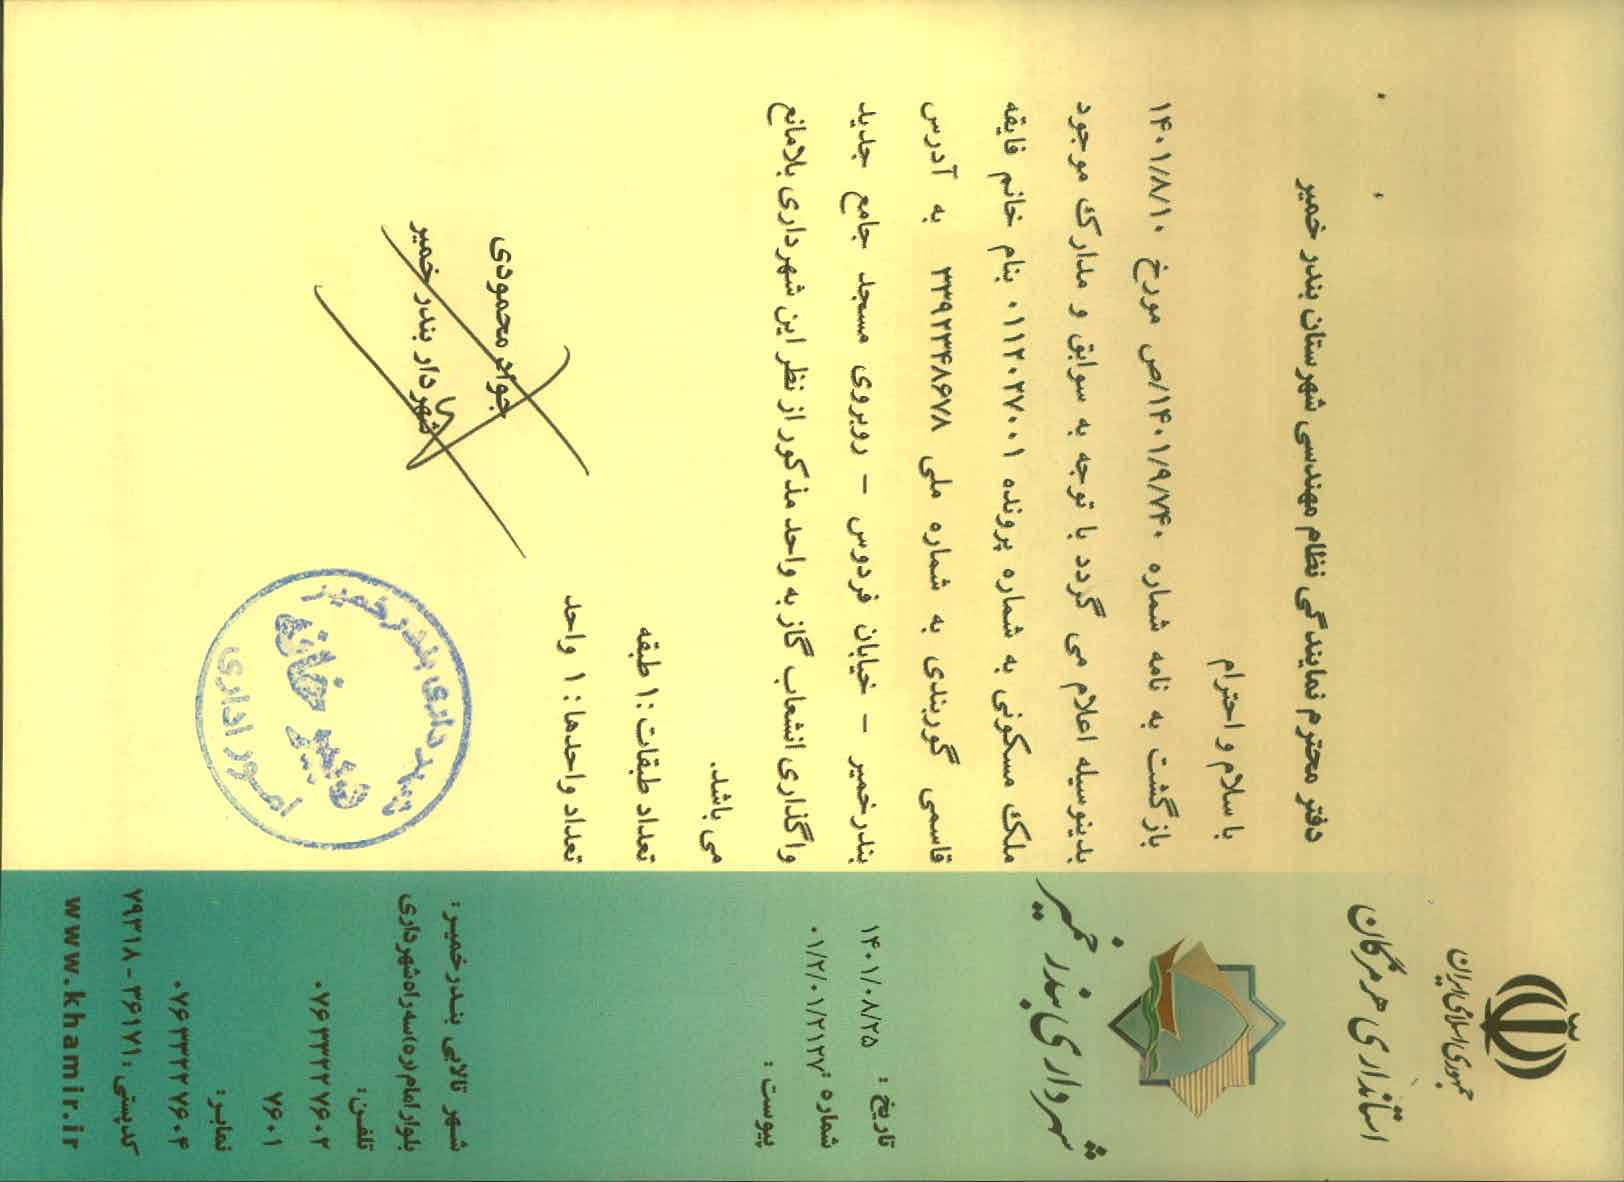 جمهوری اسلامی ایران
استانداری هرمزگان
شهرداری بندر خمیر
تاریخ : ۱۴۰۱/۰۸/۲۵
شماره : ۰۱/۲/۰۱/۲۱۲۷
پیوست :
دفتر محترم نمایندگی نظام مهندسی شهرستان بندر خمیر
با سلام و احترام
بازگشت به نامه شماره ۱۴۰۱/۹/۷۴۰/ص مورخ ۱۴۰۱/۸/۱۰
بدینوسیله اعلام می گردد با توجه به سوابق و مدارک موجود
ملک مسکونی به شماره پرونده ۰۱۱۲۰۲۷۰۰۱ بنام خانم فایقه
قاسمی گوربندی به شماره ملی ۳۳۹۲۳۴۸۶۷۸ به آدرس
بندرخمیر – خیابان فردوس – روبروی مسجد جامع جدید
واگذاری انشعاب گاز به واحد مذکور از نظر این شهرداری بلامانع
می باشد.
تعداد طبقات : ۱ طبقه
تعداد واحدها : ۱ واحد
جواد محمودی
شهردار بندر خمیر
شهرداری بندر خمیر
دبیرخانه
امور اداری
شهر تالابی بندرخمیر :
بلوار امام (ره) سه راه شهرداری
تلفن:
۰۷۶۳۳۲۲۷۶۰۲
۷۶۰۱
نمابر:
۰۷۶۳۳۲۲۷۶۰۴
کدپستی : ۳۶۱۷۱ - ۷۹۳۱۸
www.khamir.ir